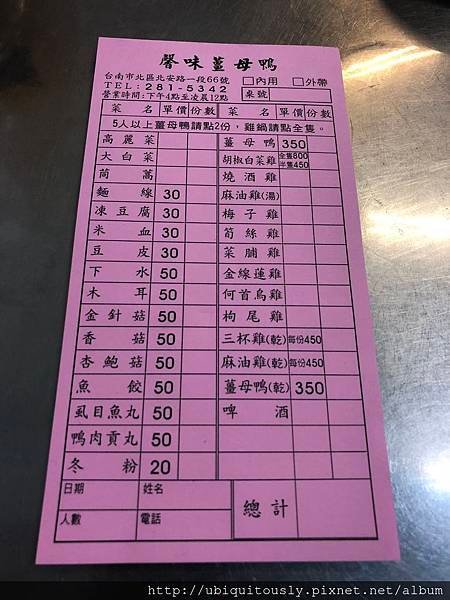 馨味薑母鴨
台南市北區北安路一段66號
TEL：281-5342
營業時間：下午4點至凌晨12點
□內用 □外帶
桌號
菜 名 單價 份數 菜 名 單價 份數
5人以上薑母鴨請點2份，雞鍋請點全隻。
高麗菜 薑母鴨 350
大白菜 胡椒白菜雞 全隻800 半隻450
茼蒿 燒酒雞
麵線 30 麻油雞(湯)
凍豆腐 30 梅子雞
米血 30 筍絲雞
豆皮 30 菜脯雞
下水 50 金線蓮雞
木耳 50 何首烏雞
金針菇 50 枸尾雞
香菇 50 三杯雞(乾) 每份450
杏鮑菇 50 麻油雞(乾) 每份450
魚餃 50 薑母鴨(乾) 350
虱目魚丸 50 啤酒
鴨肉貢丸 50
冬粉 20
日期 姓名 總計
人數 電話
http://ubiquitously.pixnet.net/album